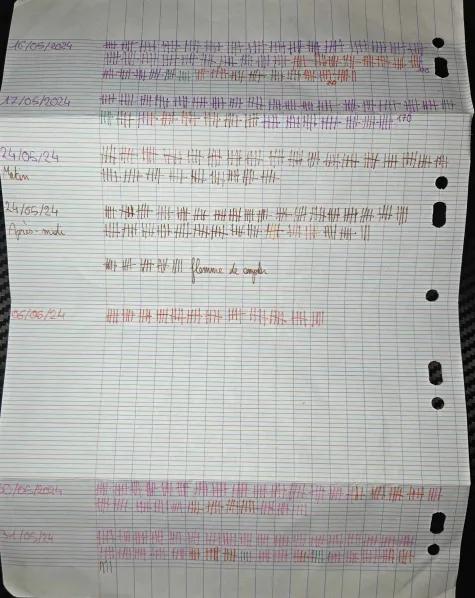 16/05/2024
17/05/2024
170
24/05/24
Matin
24/05/24
Après-midi
flemme de compter
06/06/24
30/05/2024
31/05/24